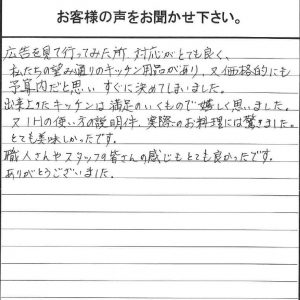 お客様の声をお聞かせ下さい。
広告を見て行ってみた所、対応がとても良く、
私たちの望み通りのキッチン用品が有り、又価格的にも
予算内だと思い すぐに決めてしまいました。
出来上ったキッチンは満足のいくもので嬉しく思いました。
又IHの使い方の説明伴、実際のお料理には驚きました。
とても美味しかったです。
職人さんやスタッフの皆さんの感じもとても良かったです。
ありがとうございました。